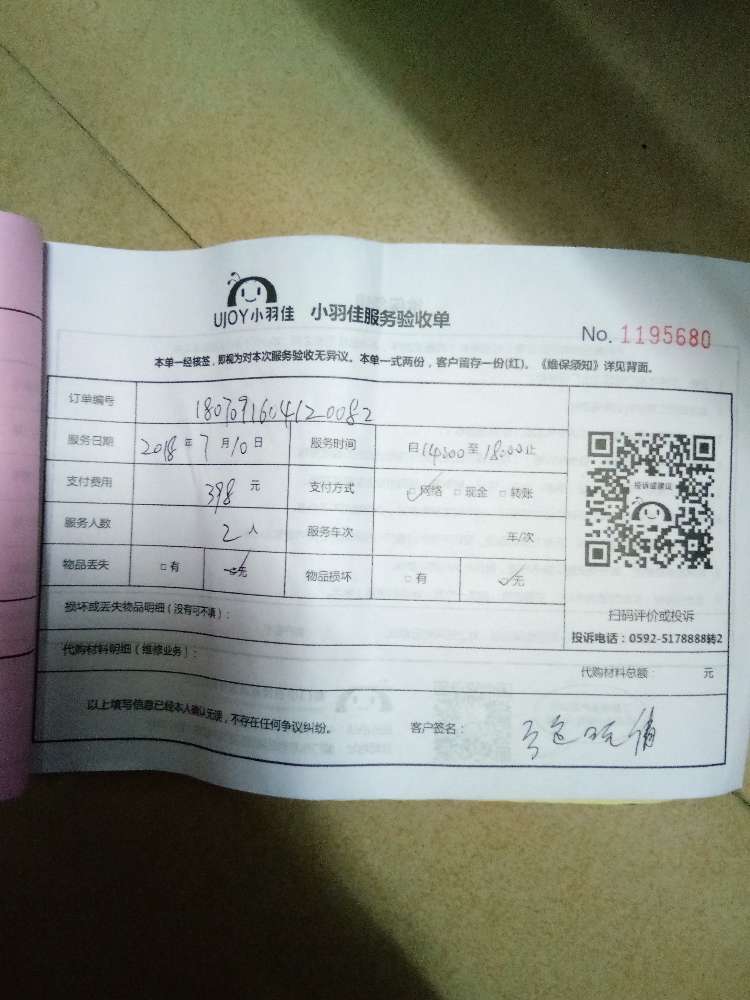 UJOY小羽佳 小羽佳服务验收单
No. 1195680
本单一经核签，即视为对本次服务验收无异议。本单一式两份，客户留存一份(红)。《维保须知》详见背面。
订单编号 1807091604120082
服务日期 2018年7月10日 服务时间 自14:00至18:00止
支付费用 398元 支付方式 ☑网络 □现金 □转账
投诉或建议
服务人数 2人 服务车次 车/次
物品丢失 □有 ☑无 物品损坏 □有 ☑无
扫码评价或投诉
损坏或丢失物品明细（没有可不填）：
投诉电话：0592-5178888转2
代购材料明细（维修业务）：
代购材料总额： 元
以上填写信息已经本人确认无误，不存在任何争议纠纷。 客户签名：